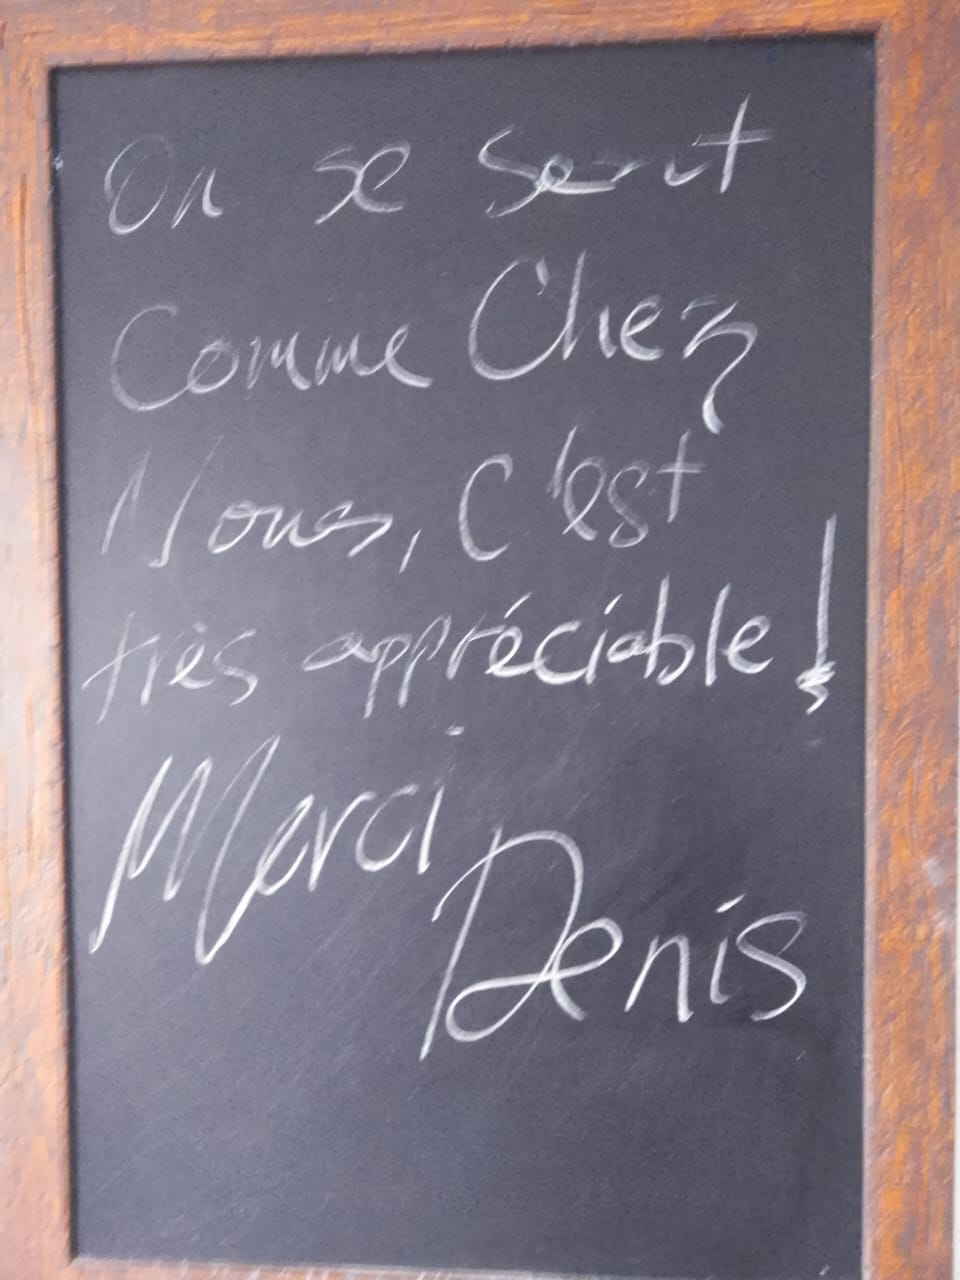 On se sent
Comme Chez
Nous, C'est
très appréciable!
Merci
Denis